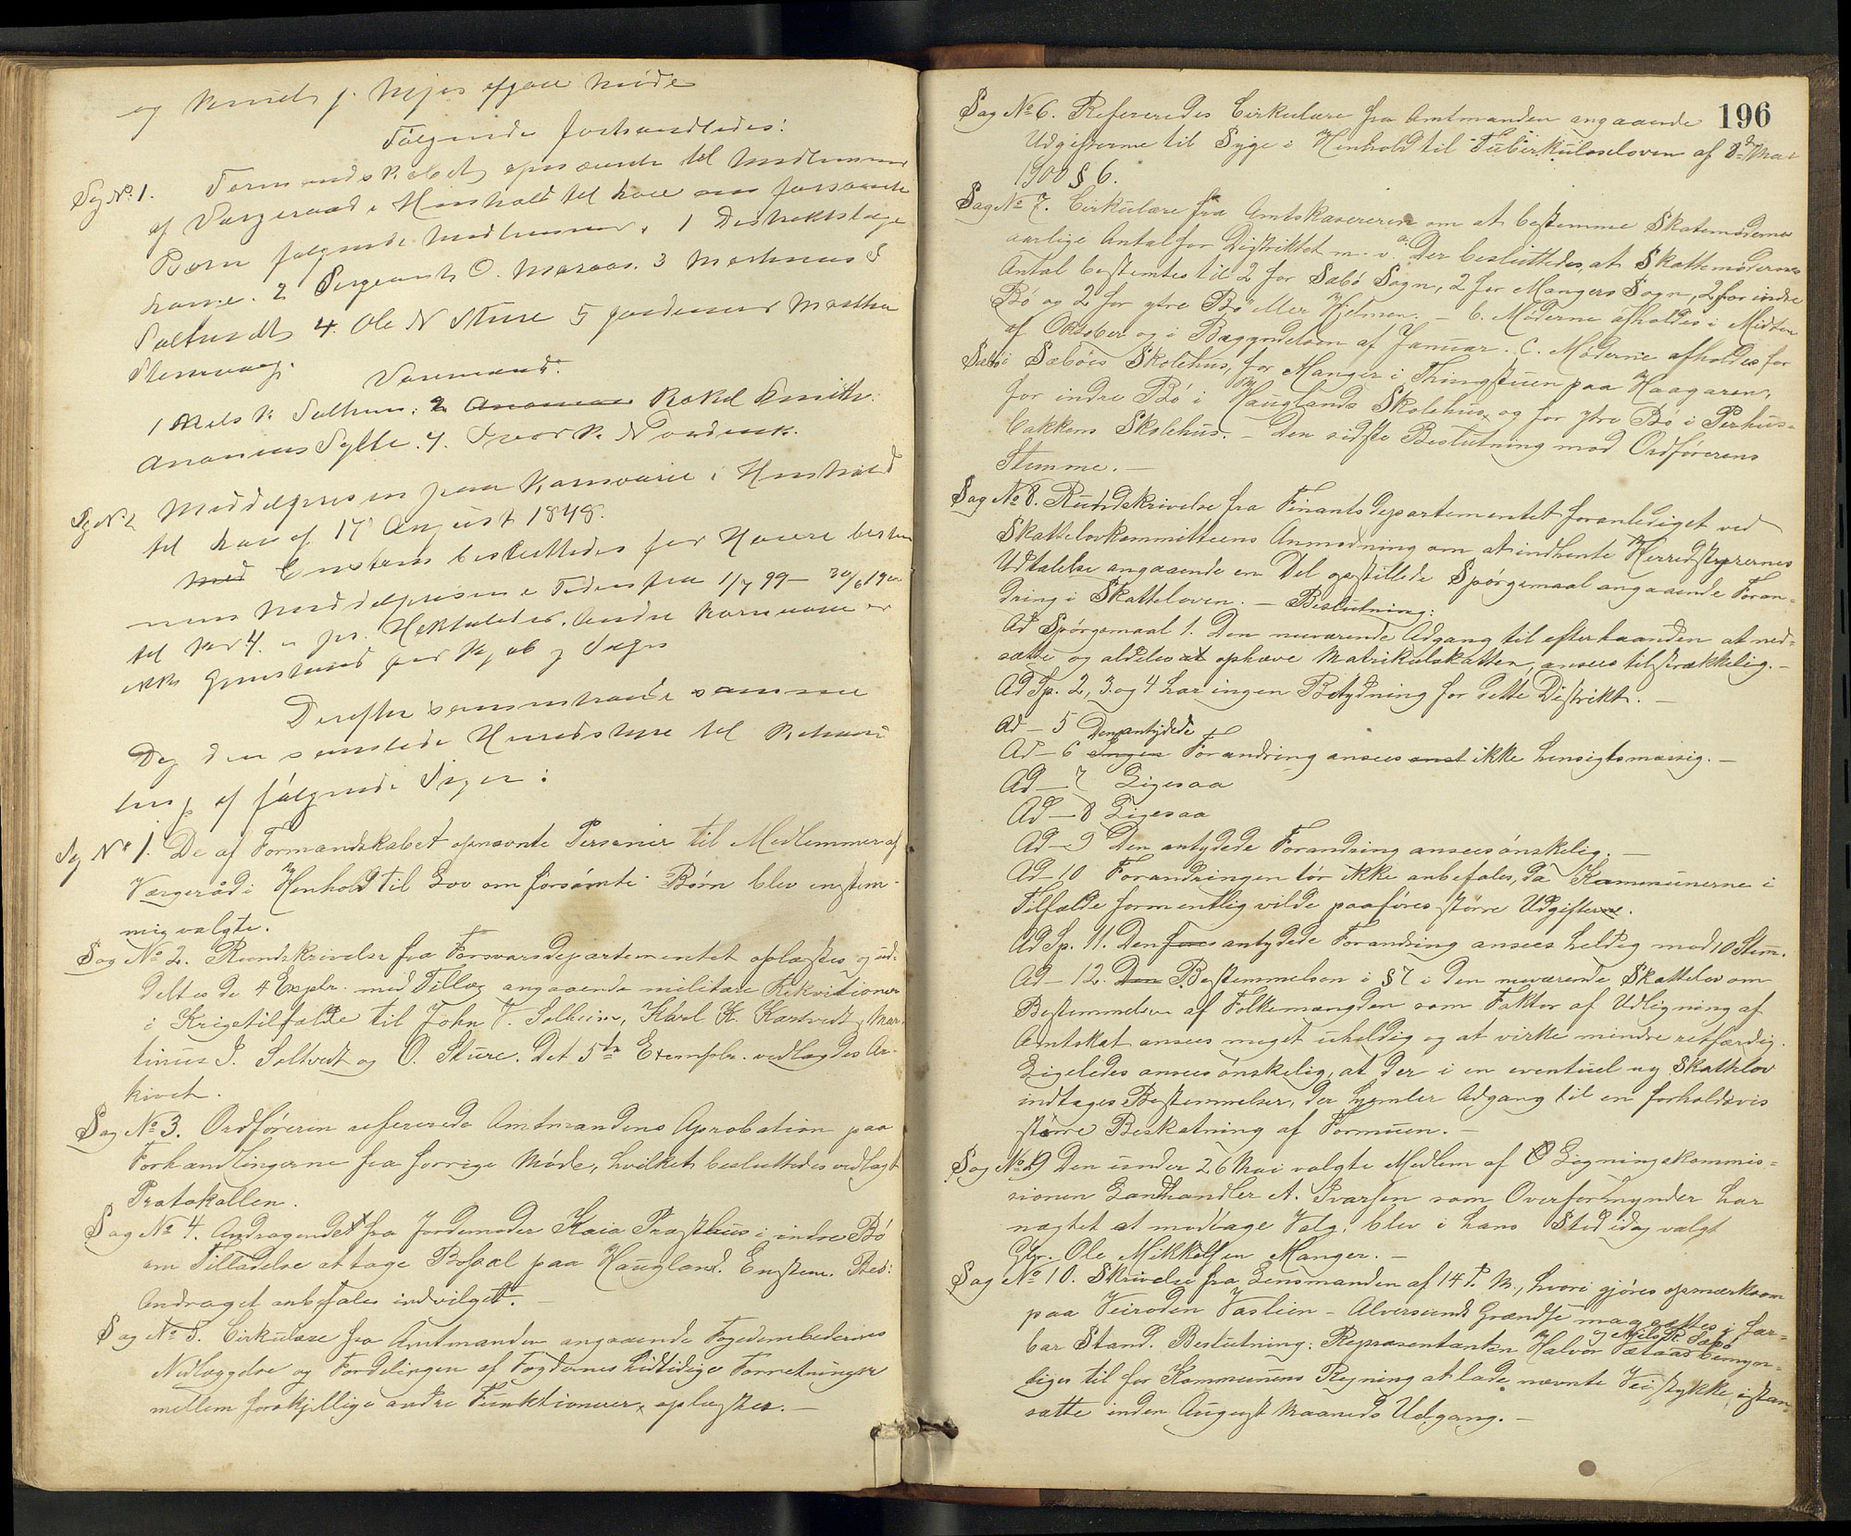 og
Følgende forhandledes:
Sag No 1. Formandskabet opnævnte til Medlemmer
af Værgeraad i Henhold til Lov om forsømte
Børn følgende Medlemmer. 1 Distriktslæge
2 Sergeant O. 3 Martinus S
Soltvedt 4. Ole N Sture 5 Jordemor Martha
Varmænd.
1 Nels K. Solheim: 2 Rakel Smith.
Ananias Sylte. 4. Ivar K. Nordvik.
Sag No 2 Middelprisen paa Kornvarer i Henhold
til Lov af 17 August 1848.
Enstem besluttedes for Havre bestem
mes Middelprisen i Tiden fra 1/7 99 – 30/6 1900
til Kr 4. pr. Hektoliter. Andre Kornvarer er
ikke Gjenstand for Kjøb og Salg
Derefter sammentraadte samme
Dag den samlede Herredstyre til Behand
ling af følgende Sager:
Sag No 1. De af Formandskabet opnævnte Personer til Medlemmer af
Værgeråd i Henhold til Lov om forsømte Børn blev enstem-
mig valgte.
Sag No 2. Rundskrivelse fra Forsvarsdepartementet oplæstes og ud-
deltes de 4 Expl. med Tillæg angaaende militære Rekvisitioner
i Krigstilfælde til John V. Solheim, Karl K. Kartveit, Mar-
tinus S. Soltvedt og O. Sture. Det 5te Exemplr. vedlagdes Ar-
kivet.
Sag No 3. Ordføreren refererede Amtmandens Aprobation paa
Forhandlingerne fra forrige Møde, hvilket besluttedes vedlagt
Protokollen.
Sag No 4. Andragendet fra Jordemoder Kaia Præsthus i indre Bø
om Tilladelse at tage Bopæl paa Haugland. Enstem. Bes:
Andraget anbefales indvilget. –
Sag No 5. Cirkulære fra Amtmanden angaaende Fogedembedernes
Nedlæggelse og Fordelingen af Fogdernes hidtidige Forretninger
mellem forskjellige andre Funktionærer, oplæstes. –
196
Sag No 6. Refereredes Cirkulære fra Amtmanden angaaende
Udgifterne til Syge i Henhold til Tuberkuloseloven af 8de Mai
1900 § 6.
Sag No 7. Cirkulære fra Amtskassereren om at bestemme Skatemødernes
aarlige Antal for Distriktet m. v. a. Der besluttedes, at Skattemødernes
Antal bestemtes til 2 for Sæbø Sogn, 2 for Mangers Sogn, 2 for indre
Bø og 2 for ytre Bø eller Hjelmen. – b. Møderne afholdes i Midten
af Oktober og i Begyndelsen af Januar. C. Møderne afholdes for
Sæbø i Sæbøis Skolehus, for Manger i Thingstuen paa Haagaren,
for indre Bø i Hauglands Skolehus, og for ytre Bø i Perhus-
bakkens Skolehus. – Den sidste Beslutning mod Ordførerens
Stemme. –
Sag No 8. Rundskrivelse fra Finantsdepartementet foranlediget ved
Skattelovkommitteens Anmodning om at indhente Herredstyrernes
Udtalelse angaaende en Del opstillede Spørgsmaal angaaende Foran-
dring i Skatteloven. – Beslutning:
Ad Spørgsmaal 1. Den nuværende Adgang til efterhaanden at ned-
sætte og aldeles at ophæve Matrikulskatten, ansees tilstrækkelig. –
Ad Sp. 2, 3 og 4 har ingen Betydning for dette Distrikt. –
Ad – 5 Den antydede
Ad – 6 Ingen Forandring ansees ikke hensigtsmæssig. –
Ad – 7 Ligesaa
Ad – 8 Ligesaa
Ad – 9 Den antydede Forandring ansees ønskelig. –
Ad – 10 Forandringen tør ikke anbefales, da Kommunerne i
Tilfælde formentlig vilde paaføres større Udgifter.
Ad Sp. 11. Den antydede Forandring ansees heldig med 10 Stem.
Ad – 12. Den Bestemmelsen i § 7 i den nuværende Skattelov om
Bestemmelsen af Folkemængden som Faktor af Udligning af
Amtskat ansees meget uheldig og at virke mindre retfærdig.
Ligeledes ansees ønskelig, at der i en eventuel ny Skattelov
indtages Bestemmelser, der hjemler Adgang til en forholdsvis
større Beskatning af Formuen. –
Sag No 9 Den under 26 Mai valgte Medlem af Ligningskommis-
sionen Landhandler A. Ivarsen som Overformynder har
nægtet at modtage Valg, blev i hans Sted idag valgt
Gbr. Ole Mikkelsen Manger. –
Sag No 10. Skrivelse fra Lensmanden af 14 d. M., hvori gjøres opmærksom
paa Veiroden Vaslien – Alversunds Grændse i far-
bar Stand. Beslutning: Repræsentanten Halvor Sætaas bemyn-
og Nils R. Sæbø
diges til for Kommunens Regning at lade nævnte Veistykke istan-
sætte inden August Maaneds Udgang. –